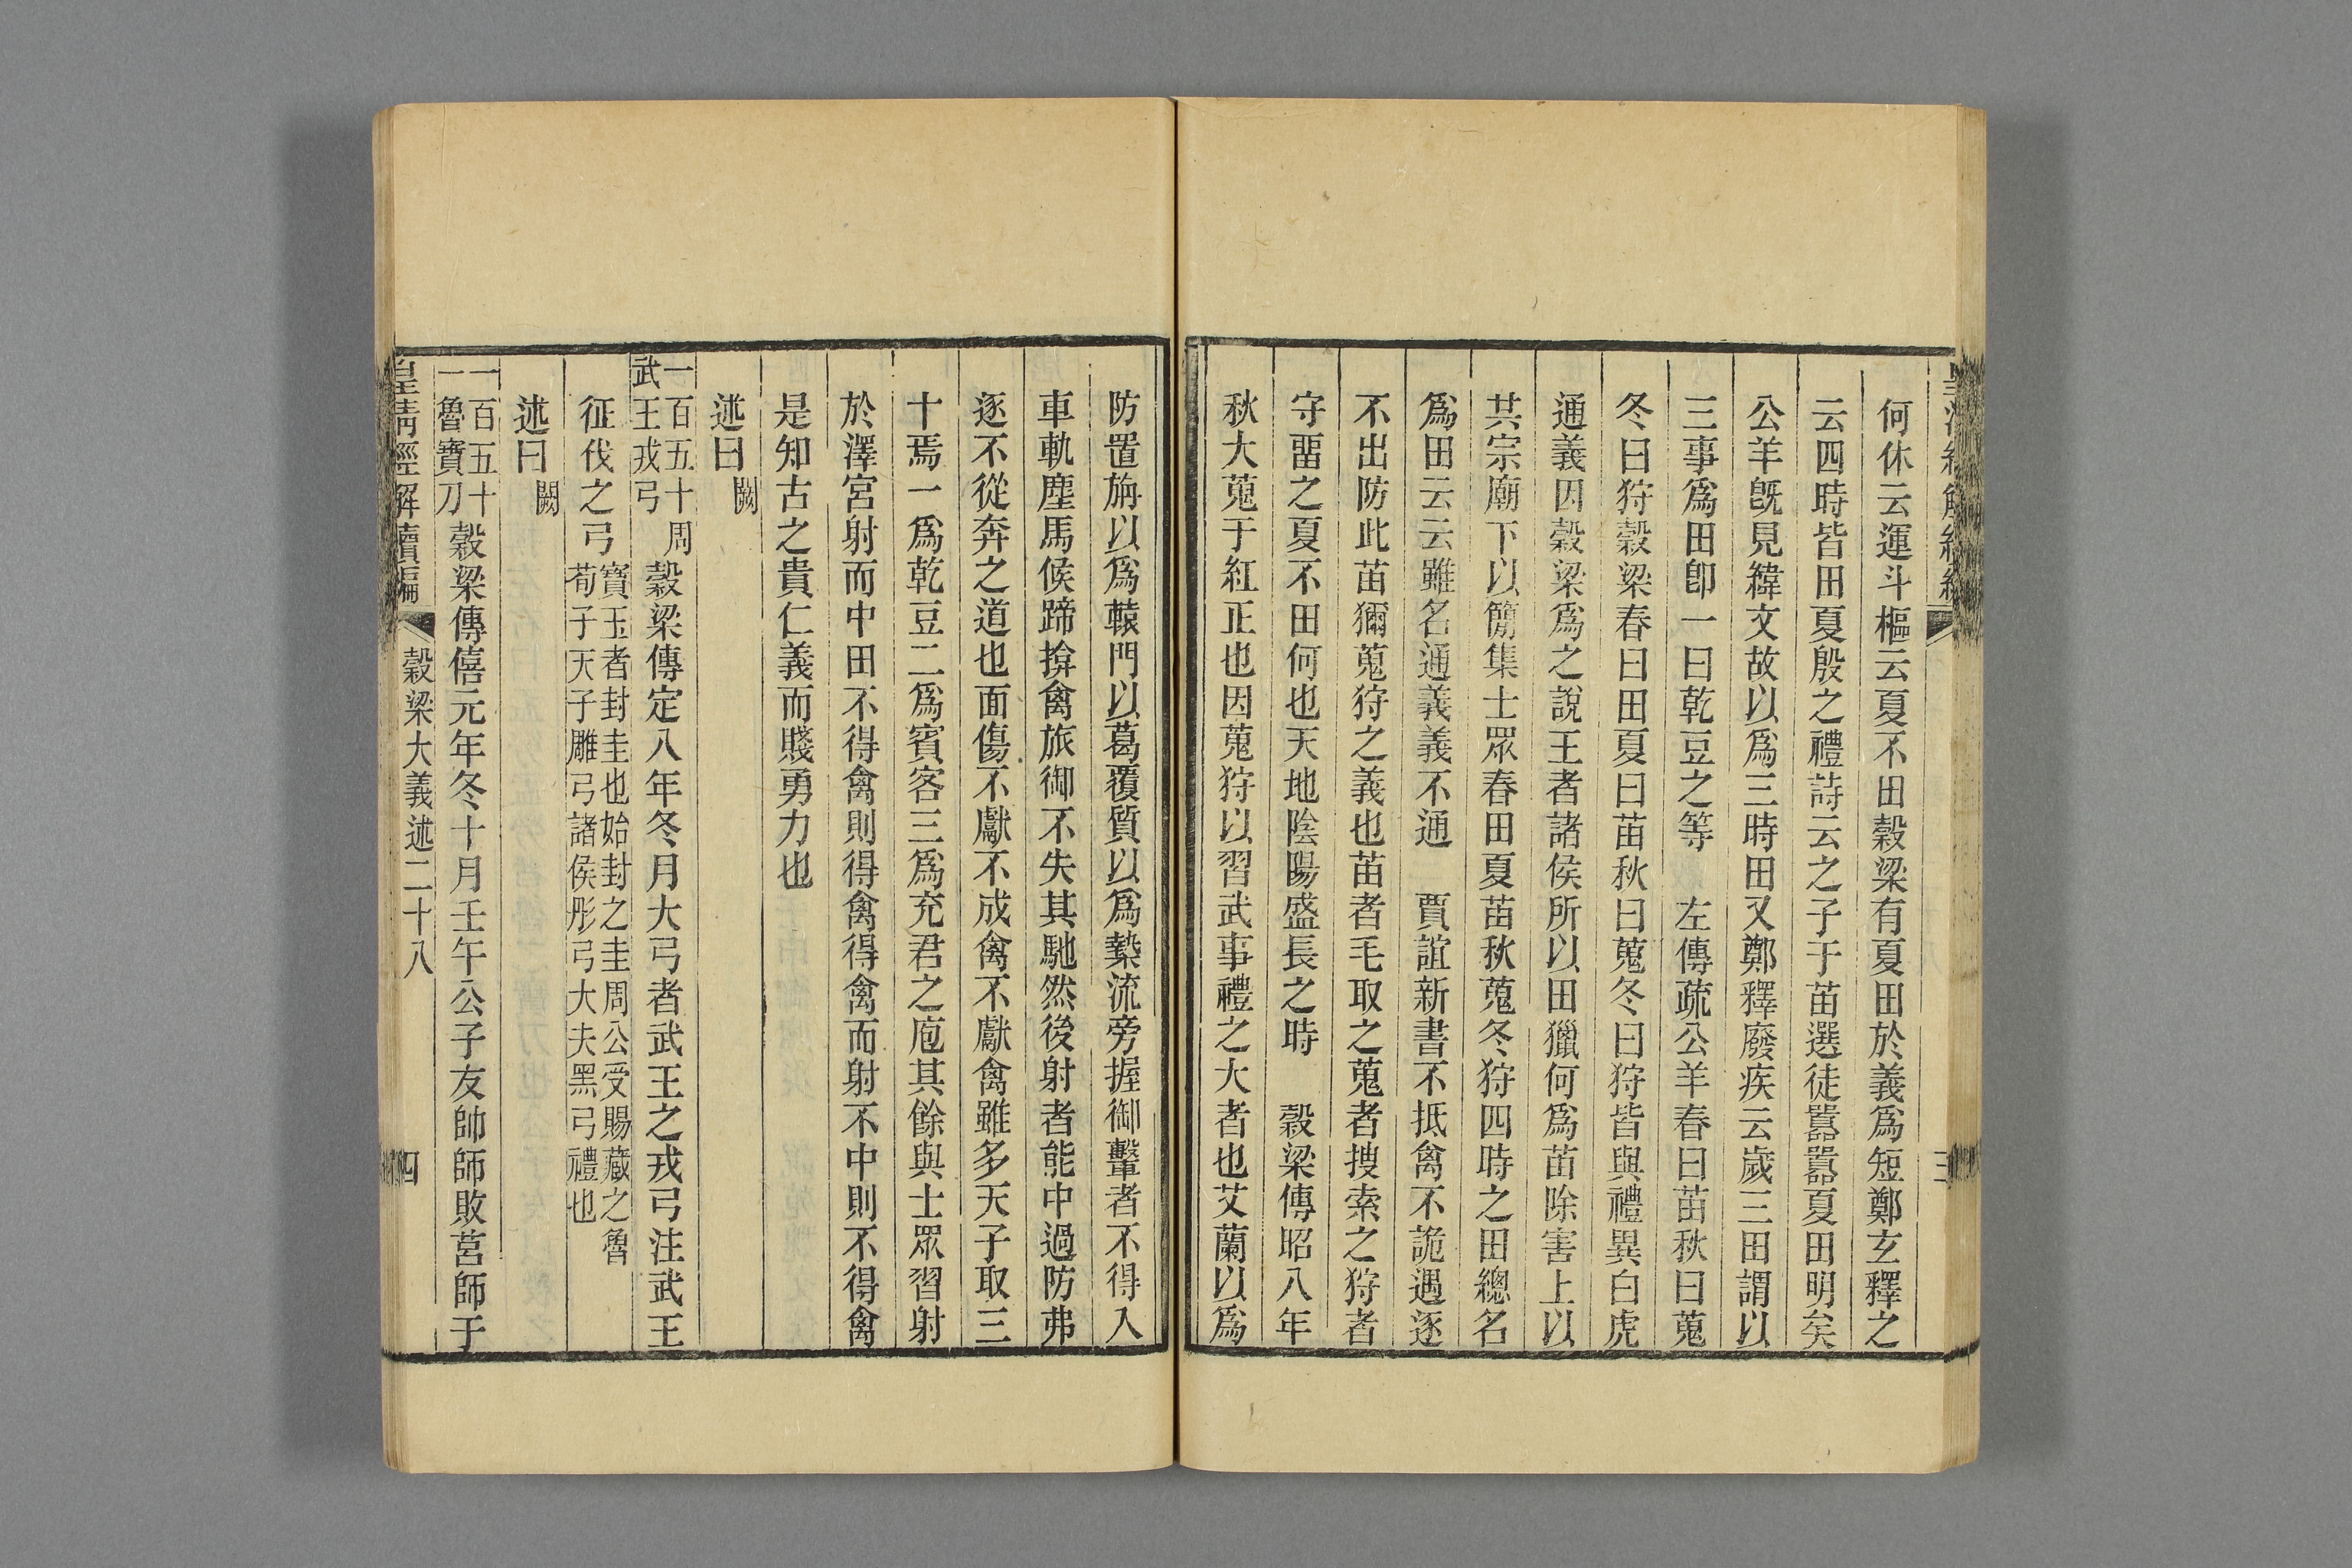 何休云運斗樞云夏不田穀梁有夏田於義爲短鄭玄釋之
云四時皆田夏殷之禮詩云之子于苗選徒嚻嚻夏田明矣
公羊旣見緯文故以爲三時田又鄭釋廢疾云歲三田謂以
三事爲田卽一曰乾豆之等　左傳疏公羊春曰苗秋曰蒐
冬曰狩穀梁春曰田夏曰苗秋曰蒐冬曰狩皆與禮異白虎
通義因穀梁爲之說王者諸侯所以田獵何爲苗除害上以
共宗廟下以簡集士眾春田夏苗秋蒐冬狩四時之田總名
爲田云云雖名通義義不通　賈誼新書不抵禽不詭遇逐
不出防此苗獮蒐狩之義也苗者毛取之蒐者搜索之狩者
守畱之夏不田何也天地陰陽盛長之時　穀梁傳昭八年
秋大蒐于紅正也因蒐狩以習武事禮之大者也艾蘭以爲
防置旃以爲轅門以葛覆質以爲槷流旁握御轚者不得入
車軌塵馬候蹄揜禽旅御不失其馳然後射者能中過防弗
逐不從奔之道也面傷不獻不成禽不獻禽雖多天子取三
十焉一爲乾豆二爲賓客三爲充君之庖其餘與士眾習射
於澤宮射而中田不得禽則得禽得禽而射不中則不得禽
是知古之貴仁義而賤勇力也
述曰闕
一百五十周
武王戎弓
穀梁傳定八年冬月大弓者武王之戎弓注武王
征伐之弓
寶玉者封圭也始封之圭周公受賜藏之魯
荀子天子雕弓諸侯彤弓大夫黑弓禮也
述曰闕
一百五十
一魯寶刀
穀梁傳僖元年冬十月壬午公子友帥師敗莒師于
皇淸經解續編
穀梁大義述二十八
四